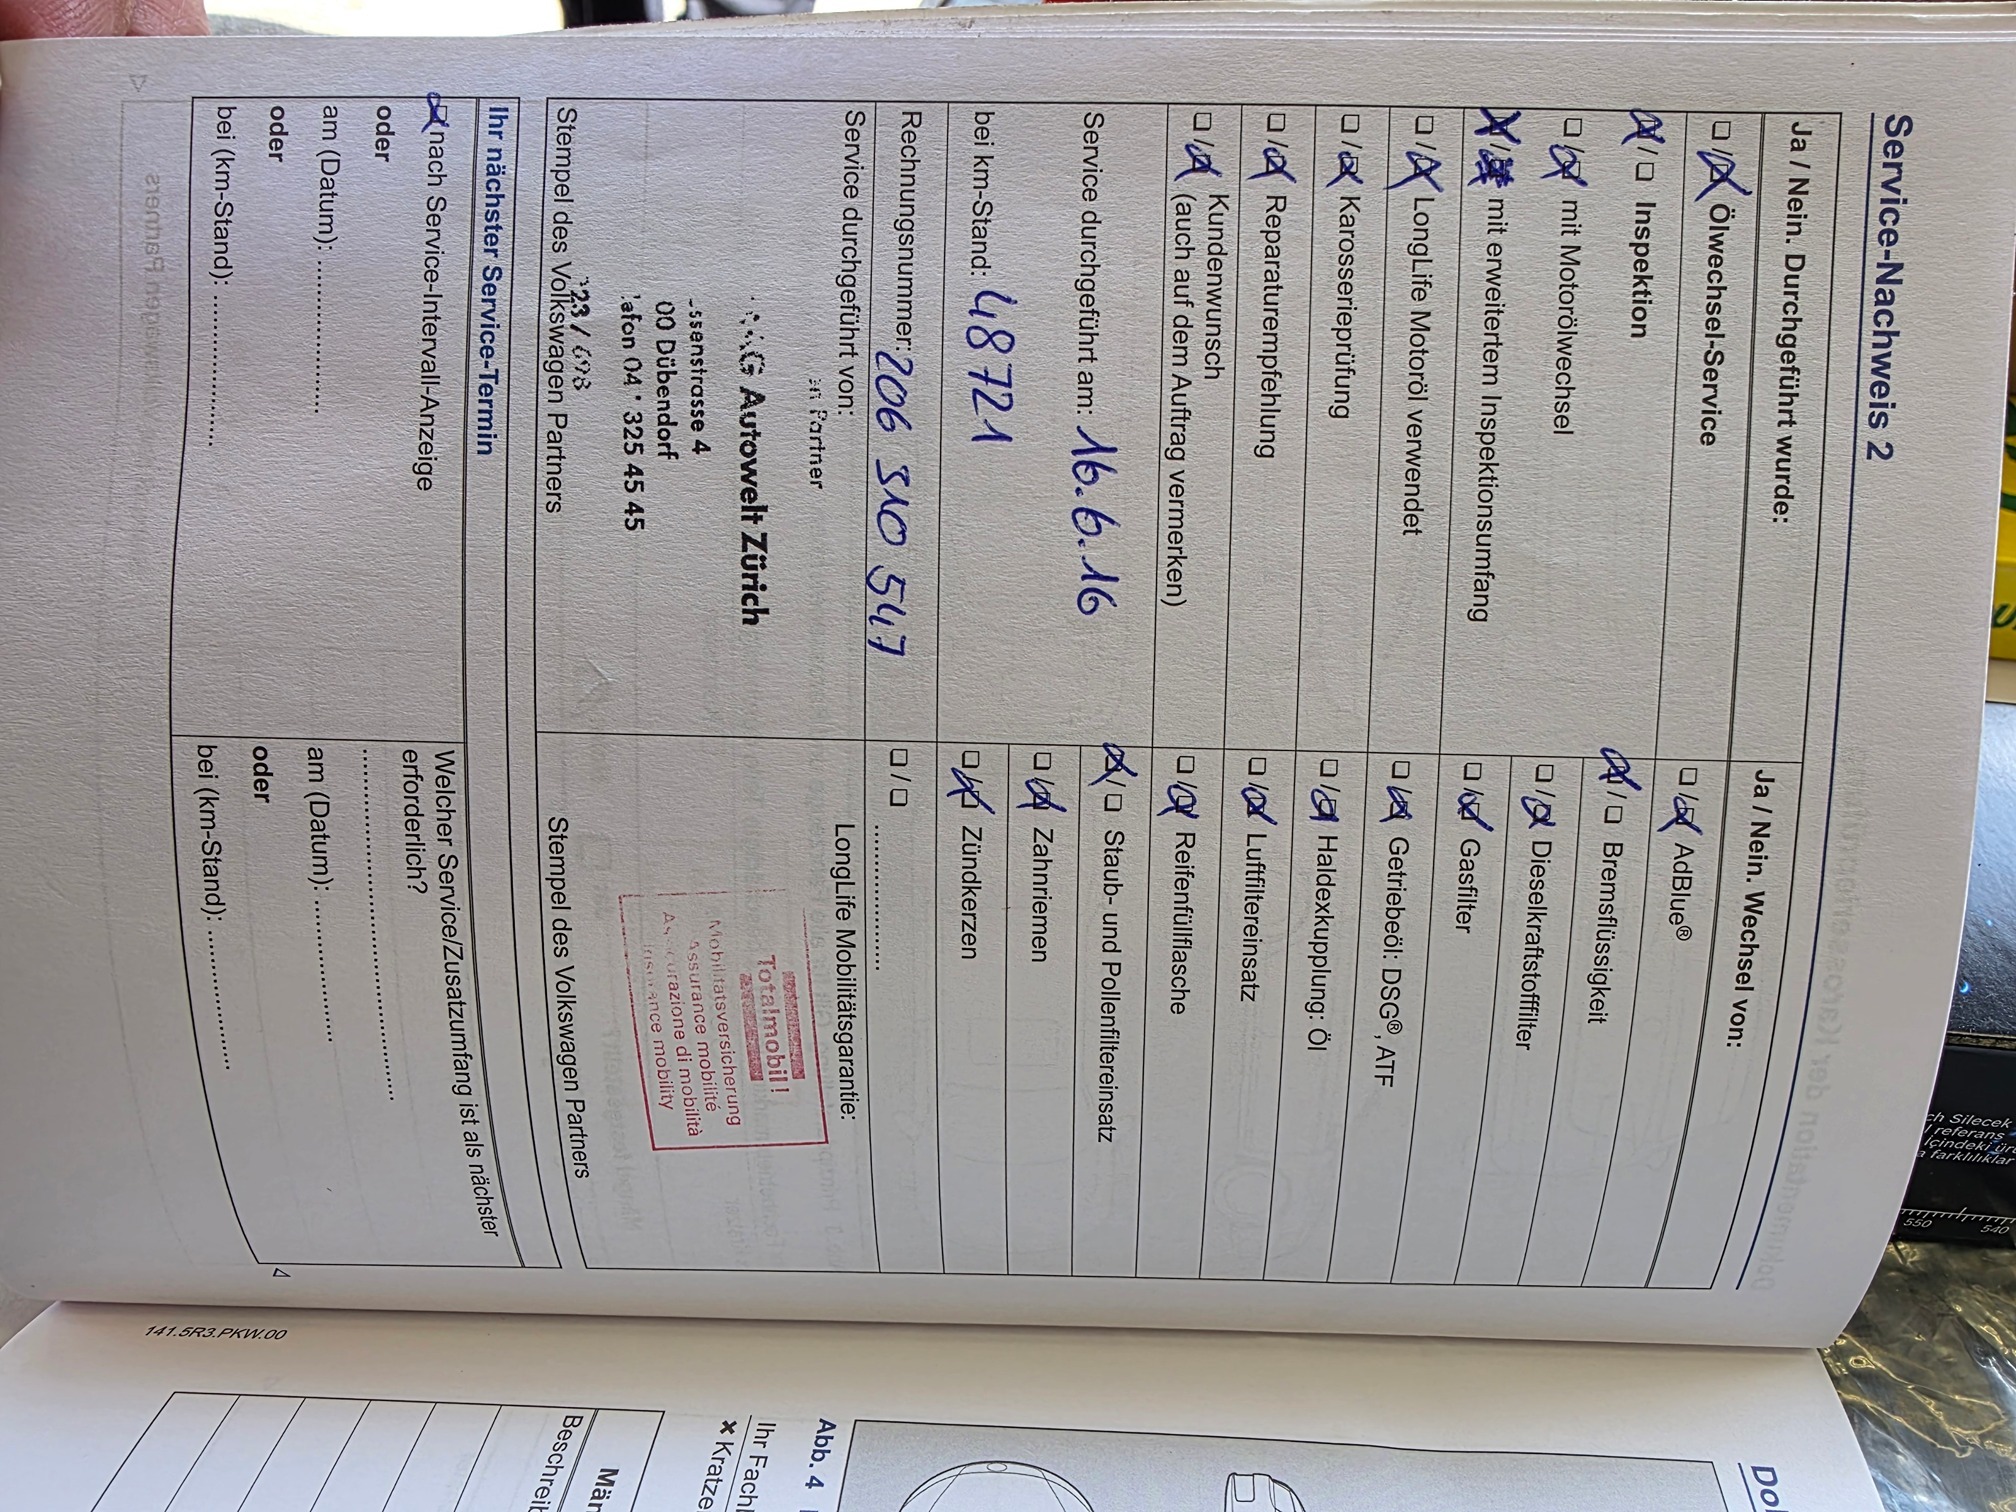 Service-Nachweis 2
Ja / Nein. Durchgeführt wurde:
☐/☒ Ölwechsel-Service
☒/☐ Inspektion
☐/☒ mit Motorölwechsel
☒/☒ mit erweitertem Inspektionsumfang
☐/☒ LongLife Motoröl verwendet
☐/☒ Karosserieprüfung
☐/☒ Reparaturempfehlung
☐/☒ Kundenwunsch
(auch auf dem Auftrag vermerken)
Service durchgeführt am: 16.6.16
bei km-Stand: 48721
Rechnungsnummer: 206 510 547
Service durchgeführt von:
Partner
Autowelt Zürich
ssenstrasse 4
00 Dübendorf
325 45 45
Stempel des Volkswagen Partners
Ja / Nein. Wechsel von:
☐/☒ AdBlue®
☒/☐ Bremsflüssigkeit
☐/☒ Dieselkraftstofffilter
☐/☒ Gasfilter
☐/☒ Getriebeöl: DSG®, ATF
☐/☒ Haldexkupplung: Öl
☐/☒ Luftfiltereinsatz
☐/☒ Reifenfüllflasche
☒/☐ Staub- und Pollenfiltereinsatz
☐/☒ Zahnriemen
☐/☒ Zündkerzen
☐/☐ ....................
LongLife Mobilitätsgarantie:
Totalmobil!
Mobilitätsversicherung
Assurance mobilité
Assicurazione di mobilità
Insurance mobility
Stempel des Volkswagen Partners
Ihr nächster Service-Termin
☒ nach Service-Intervall-Anzeige
oder
am (Datum): ....................
oder
bei (km-Stand): ....................
Welcher Service/Zusatzumfang ist als nächster
erforderlich?
....................
am (Datum): ....................
oder
bei (km-Stand): ....................
141.5R3.PKW.00
Abb. 4
Kratze
Beschreib
ch Silecek
referans
İçindeki ürü
a farklılıklar
550 540